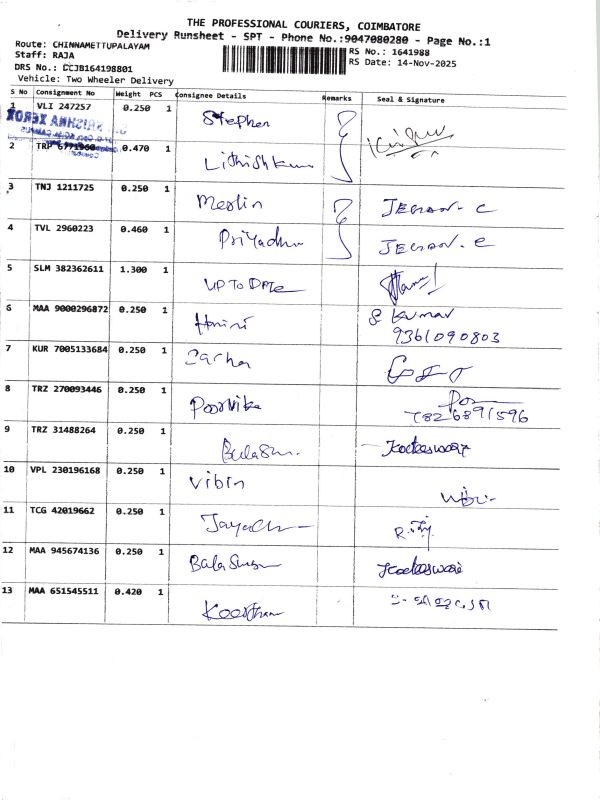 THE PROFESSIONAL COURIERS, COIMBATORE
Delivery Runsheet - SPT - Phone No.:9047080280 - Page No.:1
Route: CHINNAMETTUPALAYAM
RS No.: 1641988
Staff: RAJA
RS Date: 14-Nov-2025
DRS No.: CCJB164198801
Vehicle: Two Wheeler Delivery
S No Consignment No Weight PCS Consignee Details Remarks Seal & Signature
1 VLI 247257 0.250 1 Stephen
KRISHNA XEROX
2 TRP 6771960 0.470 1 Lithishkum
3 TNJ 1211725 0.250 1 Merlin JEGAN. C
4 TVL 2960223 0.460 1 Priyadha JEGAN. C
5 SLM 382362611 1.300 1 UP TO DATE
6 MAA 9000296872 0.250 1 S Kumar
9361090803
7 KUR 7005133684 0.250 1
8 TRZ 270093446 0.250 1 Poorvika
7826891596
9 TRZ 31488264 0.250 1 Balasu. Koteeswari
10 VPL 230196168 0.250 1 Vibin Vibin
11 TCG 42019662 0.250 1 Jayach
12 MAA 945674136 0.250 1 Balasu Koteeswari
13 MAA 651545511 0.420 1 Keerthan